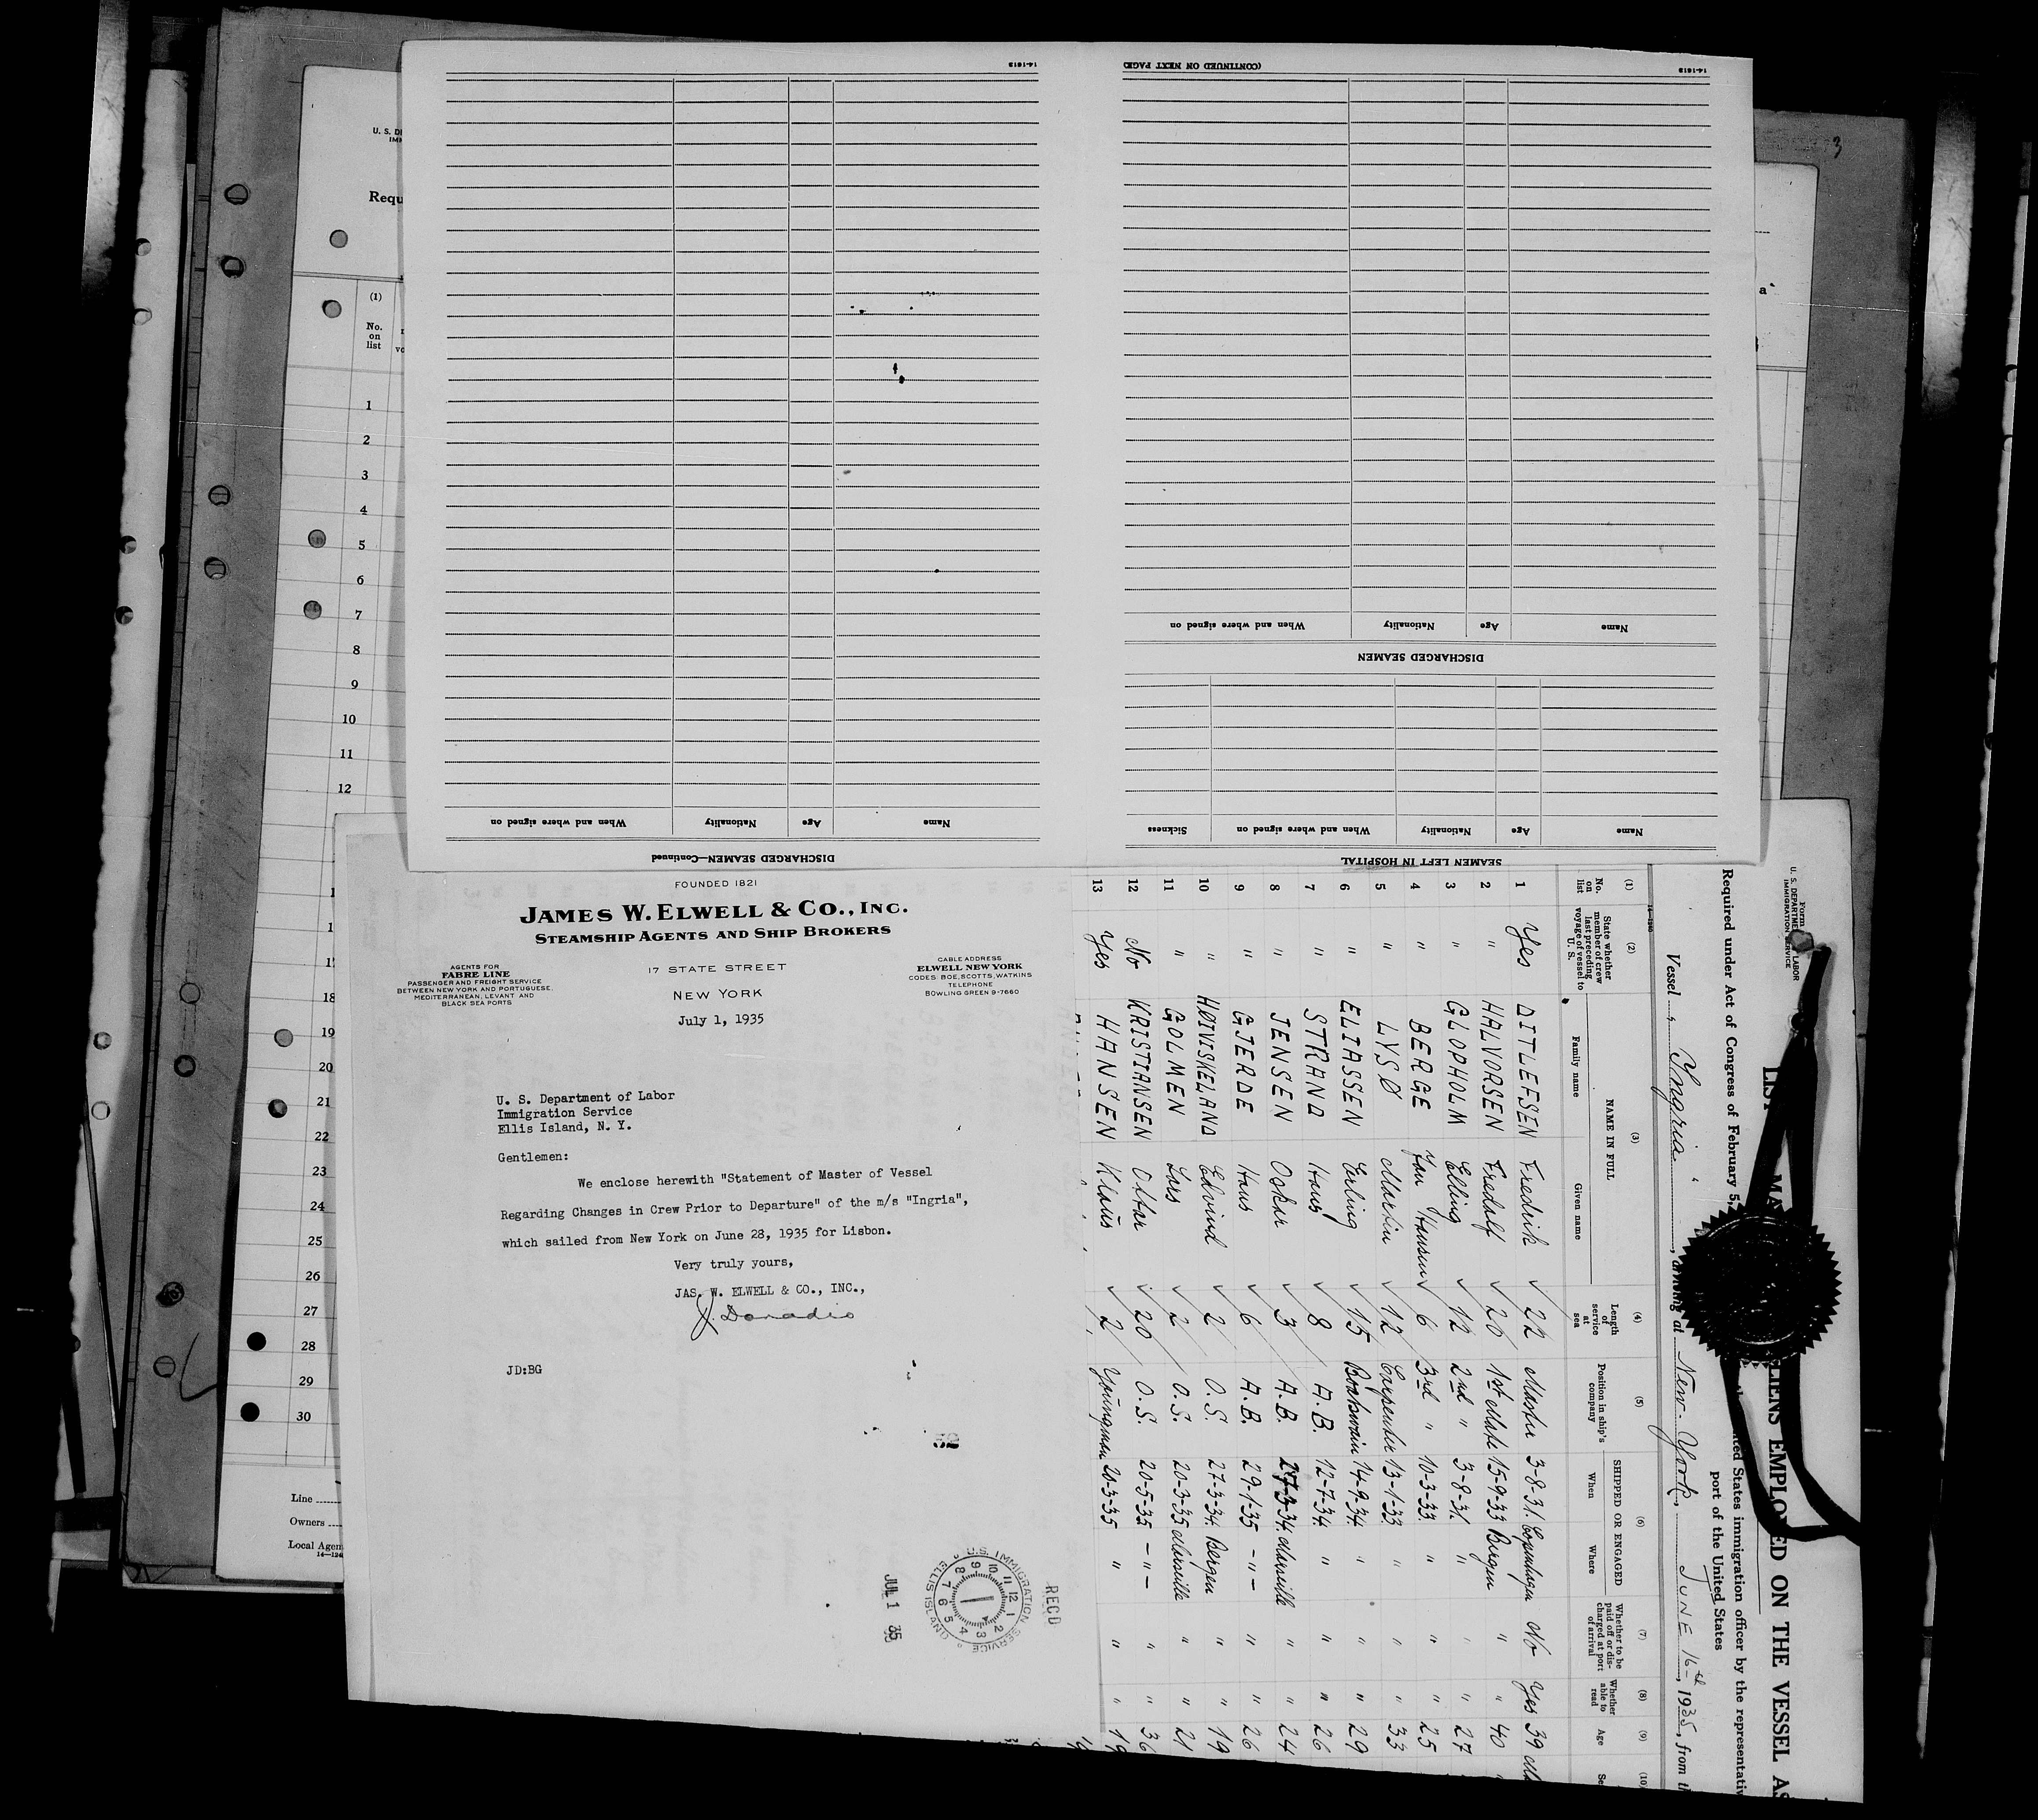 3
U. S. DE
IMM
Requ
(1)
No.
on
list
1
2
3
4
5
6
7
8
9
10
11
12
18
19
20
21
22
23
24
25
26
27
28
29
30
Line
Owners
Local Agen
14-1613
(CONTINUED ON NEXT PAGE)
14-1613
When and where signed on Nationality Age Name
DISCHARGED SEAMEN
When and where signed on Nationality Age Name
DISCHARGED SEAMEN—Continued
Sickness When and where signed on Nationality Age Name
SEAMEN LEFT IN HOSPITAL
FOUNDED 1821
JAMES W. ELWELL & CO., INC.
STEAMSHIP AGENTS AND SHIP BROKERS
AGENTS FOR
FABRE LINE
PASSENGER AND FREIGHT SERVICE
BETWEEN NEW YORK AND PORTUGUESE,
MEDITERRANEAN, LEVANT AND
BLACK SEA PORTS
17 STATE STREET
NEW YORK
CABLE ADDRESS
ELWELL NEW YORK
CODES BOE, SCOTTS, WATKINS
TELEPHONE
BOWLING GREEN 9-7660
July 1, 1935
U. S. Department of Labor
Immigration Service
Ellis Island, N. Y.
Gentlemen:
We enclose herewith "Statement of Master of Vessel
Regarding Changes in Crew Prior to Departure" of the m/s "Ingria",
which sailed from New York on June 28, 1935 for Lisbon.
Very truly yours,
JAS. W. ELWELL & CO., INC.,
J. Donadio
JD:BG
U.S. IMMIGRATION SERVICE ELLIS ISLAND
REC'D
JUL 1 35
Form
U. S. DEPARTMENT LABOR
IMMIGRATION SERVICE
LIST MA LIENS EMPLOYED ON THE VESSEL AS
Required under Act of Congress of February 5, ted States immigration officer by the representativ
port of the United States
Vessel "Ingria", arriving at New-York, JUNE 16th, 1935, from th
(1) No. on list
(2) State whether member of crew last preceding voyage of vessel to U. S.
(3) NAME IN FULL Family name Given name
(4) Length of service at sea
(5) Position in ship's company
(6) SHIPPED OR ENGAGED When Where
(7) Whether to be paid off or discharged at port of arrival
(8) Whether able to read
(9) Age
(10) Se
1 Yes DITLEFSEN Fredrik 22 Master 3-8-31 Copenhagen No Yes 39
2 " HALVORSEN Fredolf 20 1st Mate 15-9-33 Bergen " " 40
3 " GLOPHOLM Elling 12 2nd " 3-8-31 " " " 27
4 " BERGE Jan Hansen 6 3rd " 10-3-33 " " " 25
5 " LYSØ Martin 12 Carpenter 13-1-33 " " " 33
6 " ELIASSEN Erling 15 Boatswain 14-9-34 " " " 29
7 " STRAND Hans 8 A.B. 12-7-34 " " " 26
8 " JENSEN Oskar 3 A.B. 27-3-34 Marseille " " 24
9 " GJERDE Hans 6 A.B. 29-1-35 -"- " " 26
10 " HØIVISKELAND Edvind 2 O.S. 27-3-34 Bergen " " 19
11 " GOLMEN Lars 2 O.S. 20-3-35 Marseille " " 21
12 No KRISTIANSEN Ottar 20 O.S. 20-5-35 -"- " " 36
13 Yes HANSEN Klaus 2 Youngman 20-3-35 " " " 19